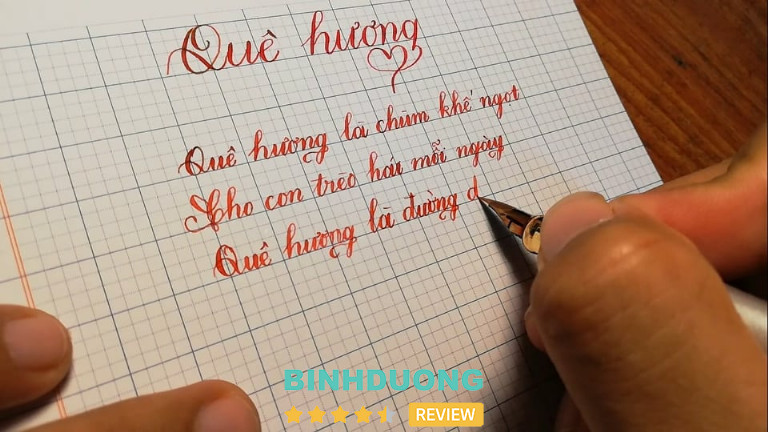 Quê hương
Quê hương là chùm khế ngọt
Cho con trèo hái mỗi ngày
Quê hương là đường đ
BINHDUONG
REVIEW